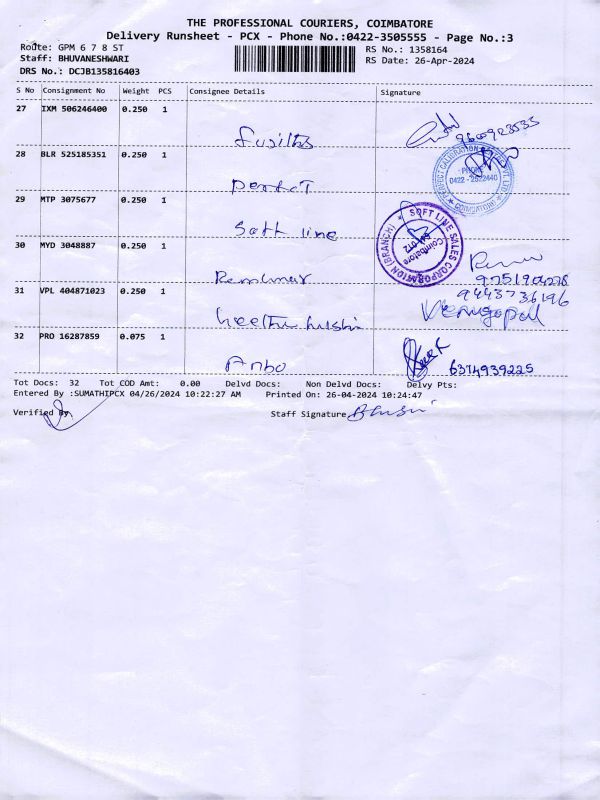 THE PROFESSIONAL COURIERS, COIMBATORE
Delivery Runsheet - PCX - Phone No.:0422-3505555 - Page No.:3
Route: GPM 6 7 8 ST
RS No.: 1358164
Staff: BHUVANESHWARI
RS Date: 26-Apr-2024
DRS No.: DCJB135816403
S No Consignment No Weight PCS Consignee Details Signature
27 IXM 506246400 0.250 1
28 BLR 525185351 0.250 1
PERFECT CALIBRATION
PHONE
0422 - 2522440
COIMBATORE
Perfect
29 MTP 3075677 0.250 1
Soft line
SOFT LINE SALES CORPORATION (BRANCH)
Coimbatore
30 MYD 3048887 0.250 1
9751904278
31 VPL 404871023 0.250 1
9443736196
Venugopal
32 PRO 16287859 0.075 1
Anbo
6374939225
Tot Docs: 32 Tot COD Amt: 0.00 Delvd Docs: Non Delvd Docs: Delvy Pts:
Entered By :SUMATHIPCX 04/26/2024 10:22:27 AM Printed On: 26-04-2024 10:24:47
Verified By Staff Signature